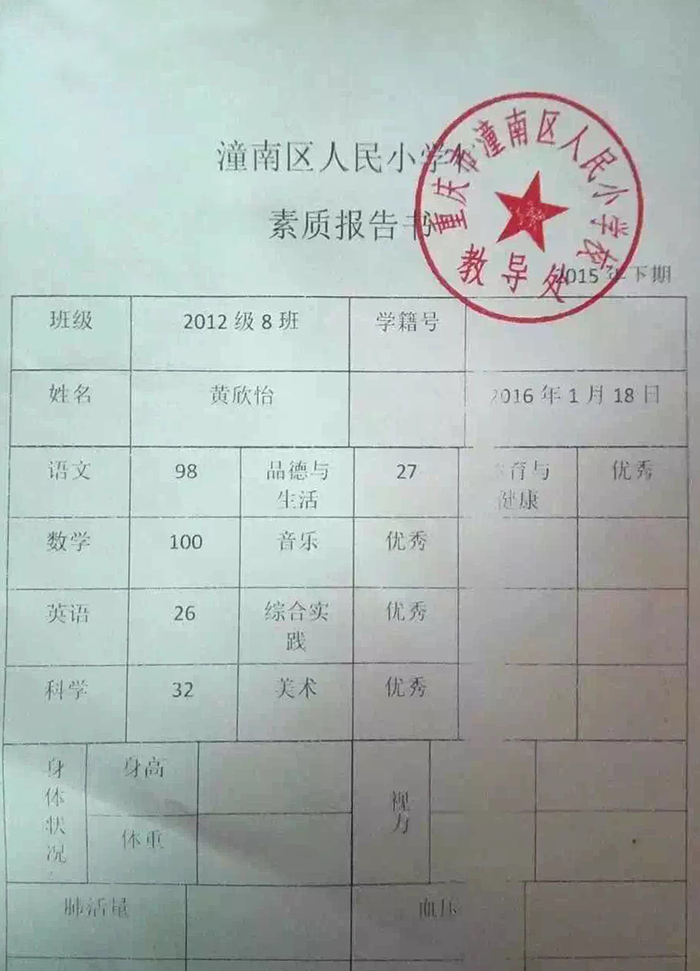 潼南区人民小学校
素质报告书
重庆市潼南区人民小学校
教导处
2015年下期
班级 2012级8班 学籍号
姓名 黄欣怡 2016年1月18日
语文 98 品德与生活 27 体育与健康 优秀
数学 100 音乐 优秀
英语 26 综合实践 优秀
科学 32 美术 优秀
身体状况 身高 视力
体重
肺活量 血压